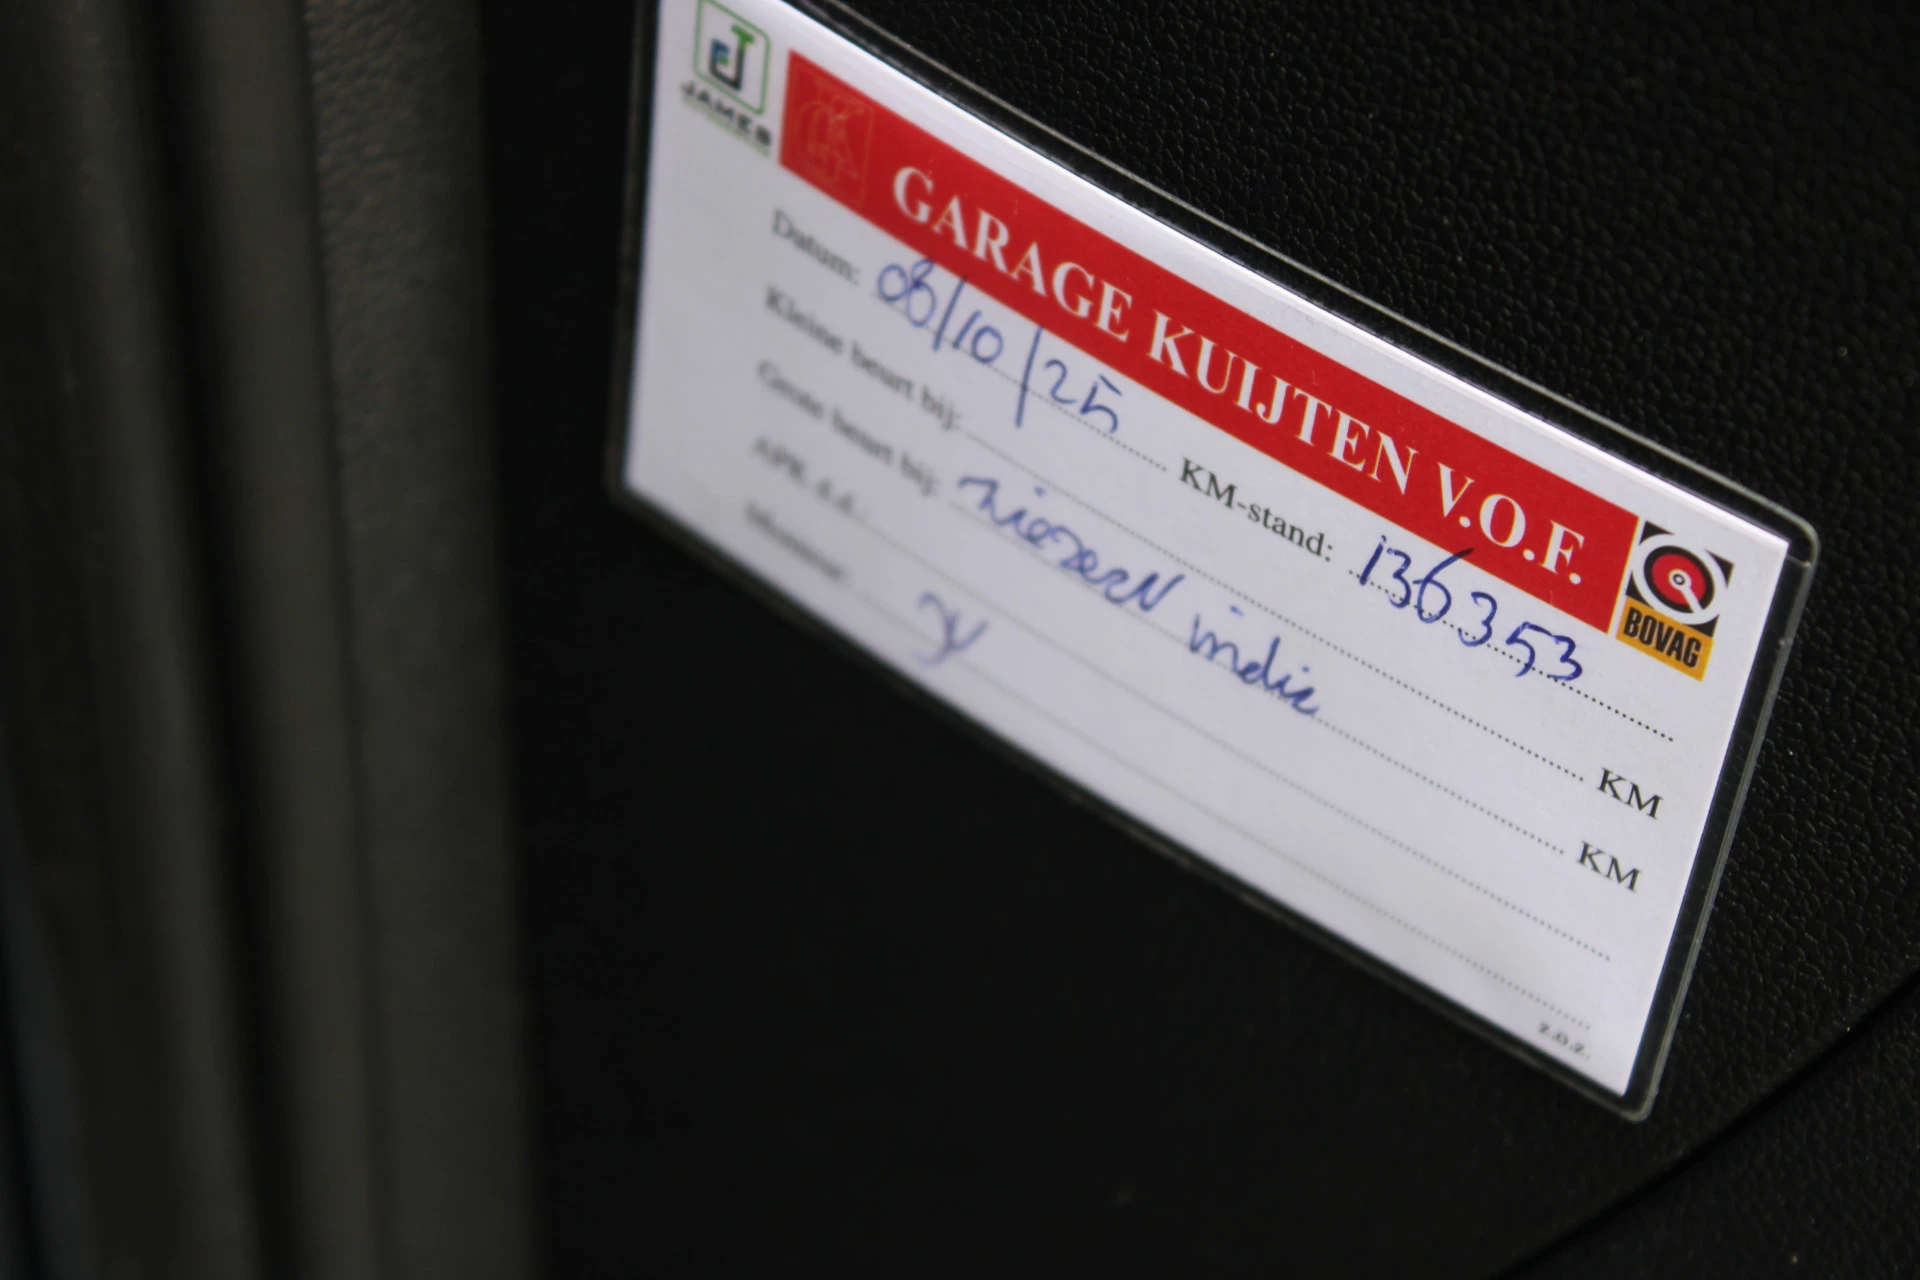 JAMES
GARAGE KUIJTEN V.O.F.
BOVAG
Datum: 08/10/25 KM-stand: 136353
Kleine beurt bij: KM
Grote beurt bij: KM
APK d.d.:
Monteur:
z.o.z.